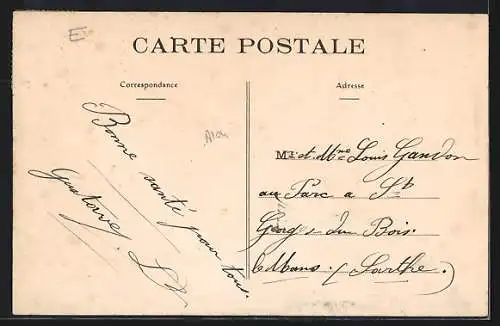 E
CARTE POSTALE
Correspondance
Adresse
Bonne santé pour tous.
Gustave. L
M et Mme Louis Gandon
au Parc a St
Georges du Bois.
le Mans. (Sarthe.)